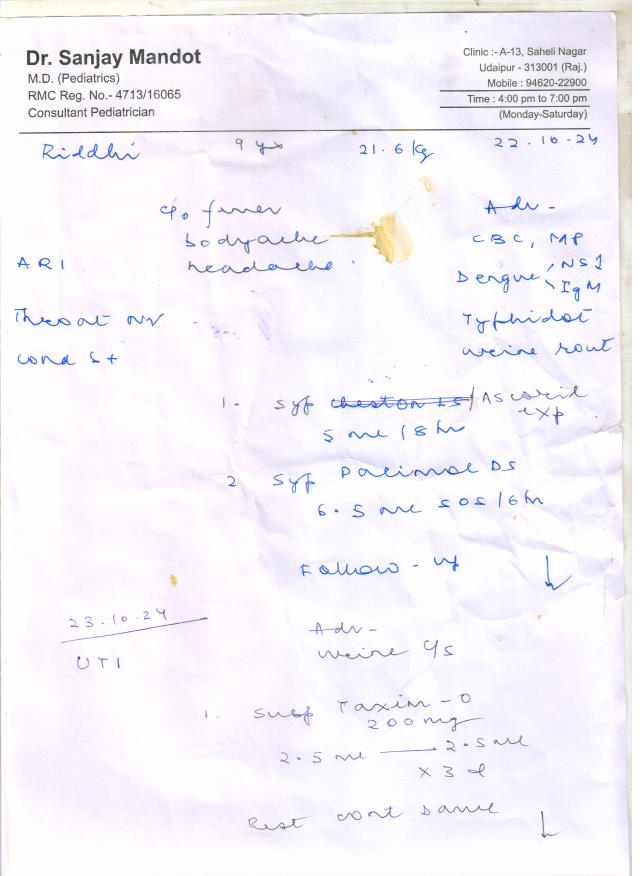 Dr. Sanjay Mandot
M.D. (Pediatrics)
RMC Reg. No.- 4713/16065
Consultant Pediatrician
Clinic :- A-13, Saheli Nagar
Udaipur - 313001 (Raj.)
Mobile : 94620-22900
Time : 4:00 pm to 7:00 pm
(Monday-Saturday)
Riddhi 9 yrs 21.6 kg 22.10.24
C/o fever
bodyache
headache
ARI
Throat
cond S+
Adv -
CBC, MP
Dengue NS1
IgM
Typhidot
urine rout
1. Syp Ascoril
exp
5 ml / 8 hr
2 Syp Pacimol DS
6.5 ml sos / 6 hr
Follow - up
23.10.24
UTI
Adv -
urine c/s
1. Susp Taxim - O
200 mg
2.5 ml — 2.5 ml
x 3 d
Rest cont same